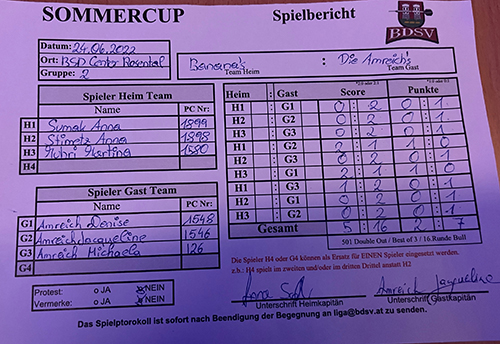 SOMMERCUP Spielbericht
BDSV
Datum: 24.06.2022
Ort: BSD Center Rosental
Gruppe: 2
Banana's : Die Amreich's
Team Heim Team Gast
Spieler Heim Team
Name PC Nr:
H1 Sumak Anna 1899
H2 Stimetz Anna 1898
H3 Martina 1580
H4
Spieler Gast Team
Name PC Nr:
G1 Amreich Denise 1548
G2 Amreich Jacqueline 1546
G3 Amreich Michaela 126
G4
Protest: o JA NEIN
Vermerke: o JA NEIN
Heim : Gast Score Punkte
H1 : G1 0 : 2 0 : 1
H2 : G2 0 : 2 0 : 1
H3 : G3 0 : 2 0 : 1
H1 : G2 2 : 1 1 : 0
H2 : G3 0 : 2 0 : 1
H3 : G1 2 : 1 1 : 0
H1 : G3 1 : 2 0 : 1
H2 : G1 0 : 2 0 : 1
H3 : G2 0 : 2 0 : 1
Gesamt 5 : 16 2 : 7
501 Double Out / Best of 3 / 16.Runde Bull
Die Spieler H4 oder G4 können als Ersatz für EINEN Spieler eingesetzt werden.
z.b.: H4 spielt im zweiten und/oder im dritten Drittel anstatt H2
Amreich Jacqueline
Unterschrift Heimkapitän Unterschrift Gastkapitän
Das Spielprotokoll ist sofort nach Beendigung der Begegnung an liga@bdsv.at zu senden.